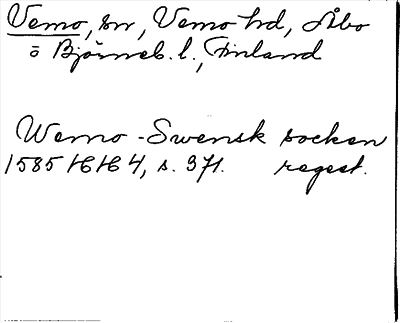 Vemo, sn, Vemo hd, Åbo
o Björneb. l., Finland
Wemo - Swensk socken
1585 16/6 4, s. 371. regest.